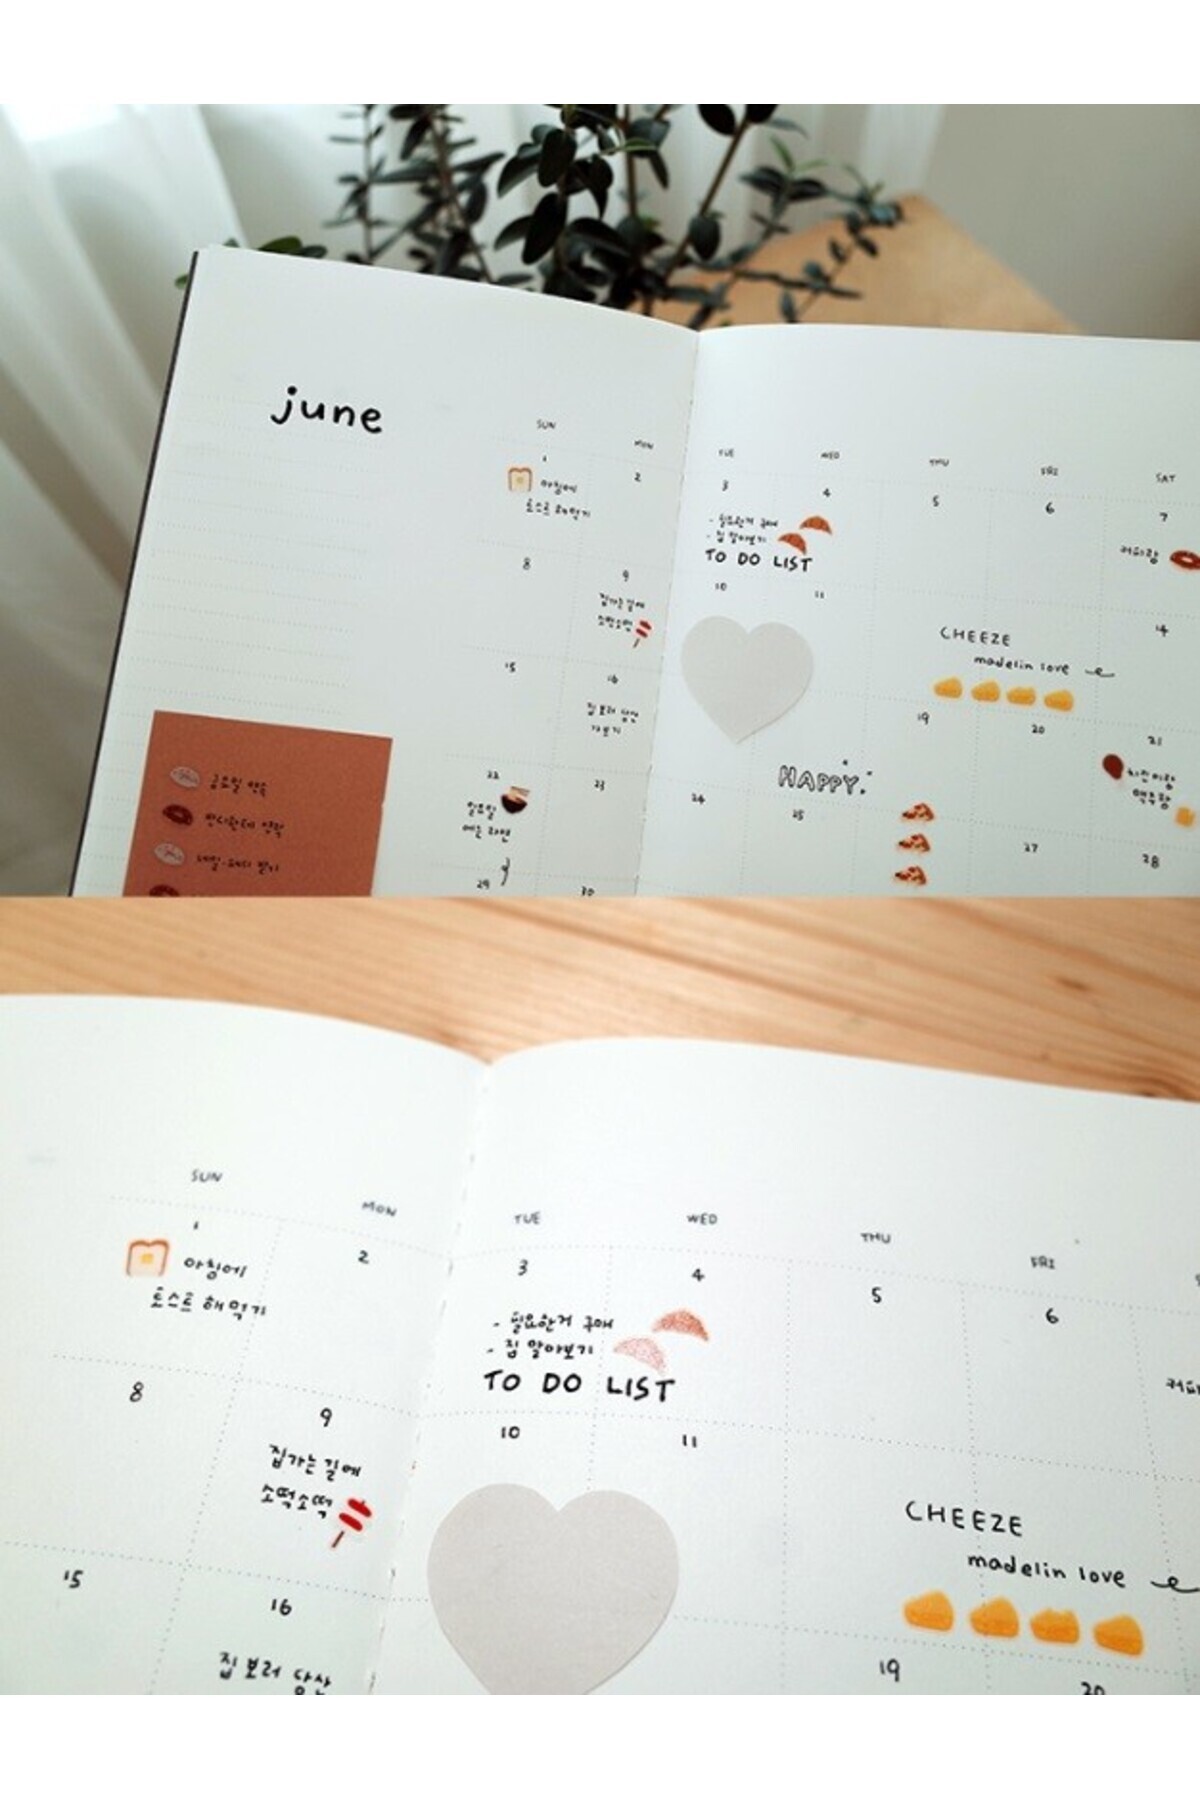 june
SUN MON TUE WED THU FRI SAT
1 2 3 4 5 6 7
아침에
토스트 해먹기
- 필요한거 구매
- 집 알아보기
TO DO LIST
커피랑
8 9 10 11 14
집가는길에
소떡소떡
CHEEZE
madelin love
15 16 19 20 21
집 보러 당산
가보기
HAPPY
치킨이랑
맥주랑
22 23 24 25 27 28
일요일
에는 라면
29 30
금요일 약속
SUN MON TUE WED THU FRI
1 2 3 4 5 6
아침에
토스트 해먹기
- 필요한거 구매
- 집 알아보기
TO DO LIST
8 9 10 11
집가는길에
소떡소떡
CHEEZE
madelin love
15 16 19 20
집 보러 당산